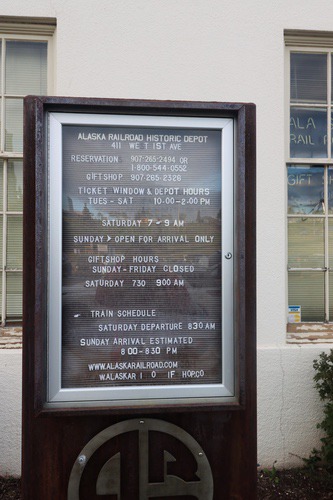 ALASKA RAILROAD HISTORIC DEPOT
411 WE T 1ST AVE
RESERVATION 907-265-2494 OR
1-800-544-0552
GIFTSHOP 907-265-2326
TICKET WINDOW & DEPOT HOURS
TUES - SAT 10:00-2:00 PM
SATURDAY 7 - 9 AM
SUNDAY OPEN FOR ARRIVAL ONLY
GIFTSHOP HOURS
SUNDAY-FRIDAY CLOSED
SATURDAY 730 900 AM
TRAIN SCHEDULE
SATURDAY DEPARTURE 830 AM
SUNDAY ARRIVAL ESTIMATED
8 00-830 PM
WWW.ALASKARAILROAD.COM
W.ALASKAR I O IF HOP.CO
ALA
RAIL
GIFT